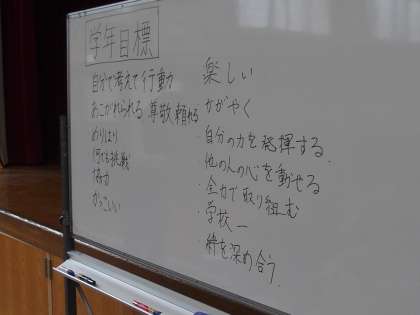 学年目標
自分で考えて行動力
あこがれられる 尊敬 頼れる
めりはり
何でも挑戦
協力
かっこいい
楽しい
かがやく
・自分の力を発揮する.
・他の人の心を動かせる
・全力で取り組む
・学校一
・絆を深め合う.